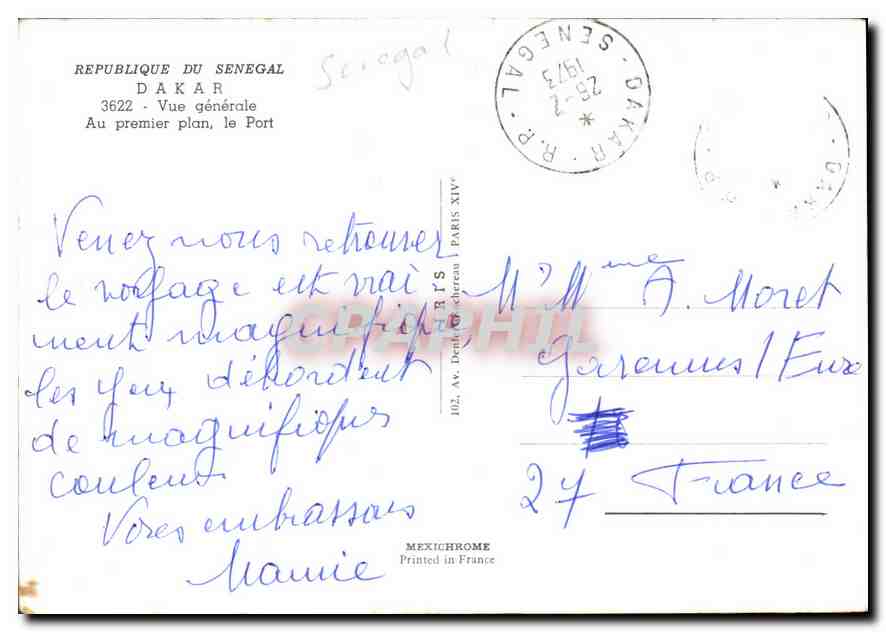 REPUBLIQUE DU SENEGAL
DAKAR
3622 - Vue générale
Au premier plan, le Port
Senegal
DAKAR - R.P. - SENEGAL
26-2
1973
*
DAKA
*
Venez nous retrouver
le voyage est vrai
ment magnifique
les yeux débordent
de magnifiques
couleurs
Vous embrassons
Mamie
102, Av. Denfert-Rochereau PARIS XIVe
M. Mme A. Moret
Garennes / Eure
27 France
MEXICHROME
Printed in France